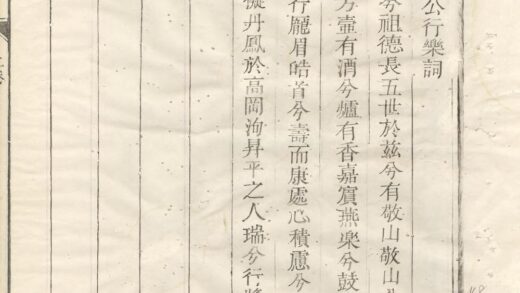 公行樂詞
兮祖德長五世於茲兮有敬山敬山
壺有酒兮爐有香嘉賓燕樂兮鼓
行龐眉皓首兮壽而康處心積慮兮
丹鳳於高岡洵昇平之人瑞兮行